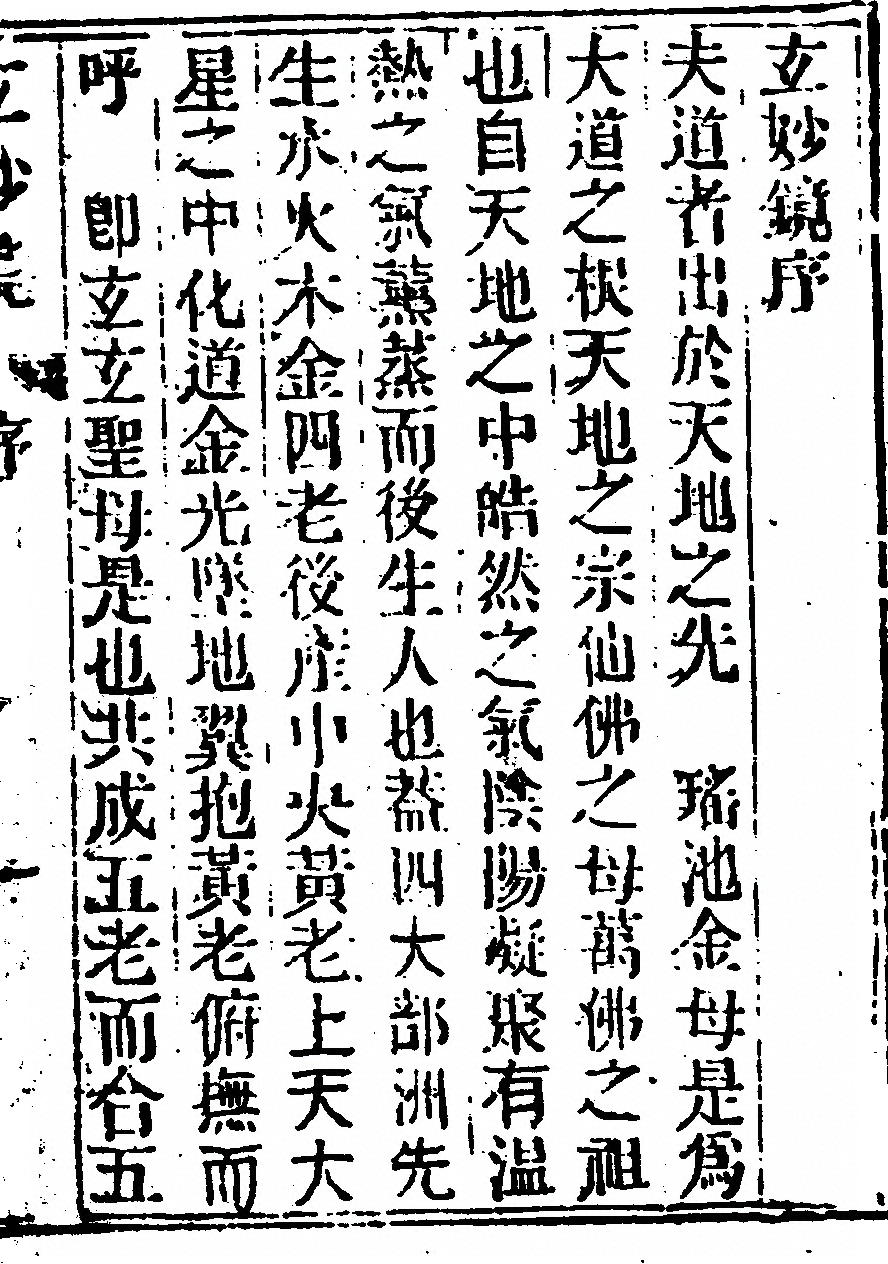 玄妙鏡序
夫道者出於天地之先　瑤池金母是為
大道之根天地之宗仙佛之母萬佛之祖
也自天地之中皓然之氣陰陽凝聚有溫
熱之氣薰蒸而後生人也蓋四大部洲先
生水火木金四老後產小火黃老上天大
星之中化道金光墜地翼抱黃老俯撫而
呼　卽玄玄聖母是也共成五老而合五